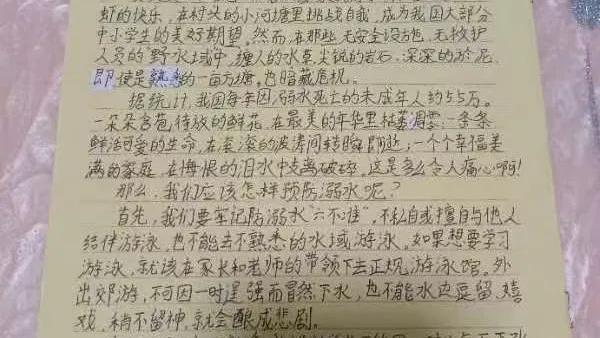 虾的快乐，在村头的小河塘里挑战自我，成为我国大部分
中小学生的美好期望。然而，在那些无安全设施、无救护
人员的"野水域中，缠人的水草、尖锐的岩石、深深的淤泥，
即使是熟悉的一亩方塘。也暗藏危机。
据统计，我国每年因溺水死亡的未成年人约5.5万。
一朵朵含苞待放的鲜花，在最美的年华里枯萎凋零；一条条
鲜活可爱的生命，在滚滚的波涛间转瞬即逝，一个个幸福美
满的家庭，在悔恨的泪水中支离破碎。这是多么令人痛心啊！
那么，我们应该怎样预防溺水呢？
首先，我们要牢记防溺水"六不准"，不私自或擅自与他人
结伴游泳，也不能去不熟悉的水域游泳，如果想要学习
游泳，就该在家长和老师的带领下去正规游泳馆。外
出郊游，不可因一时逞强而冒然下水，也不能水边逗留、嬉
戏，稍不留神，就会酿成悲剧。